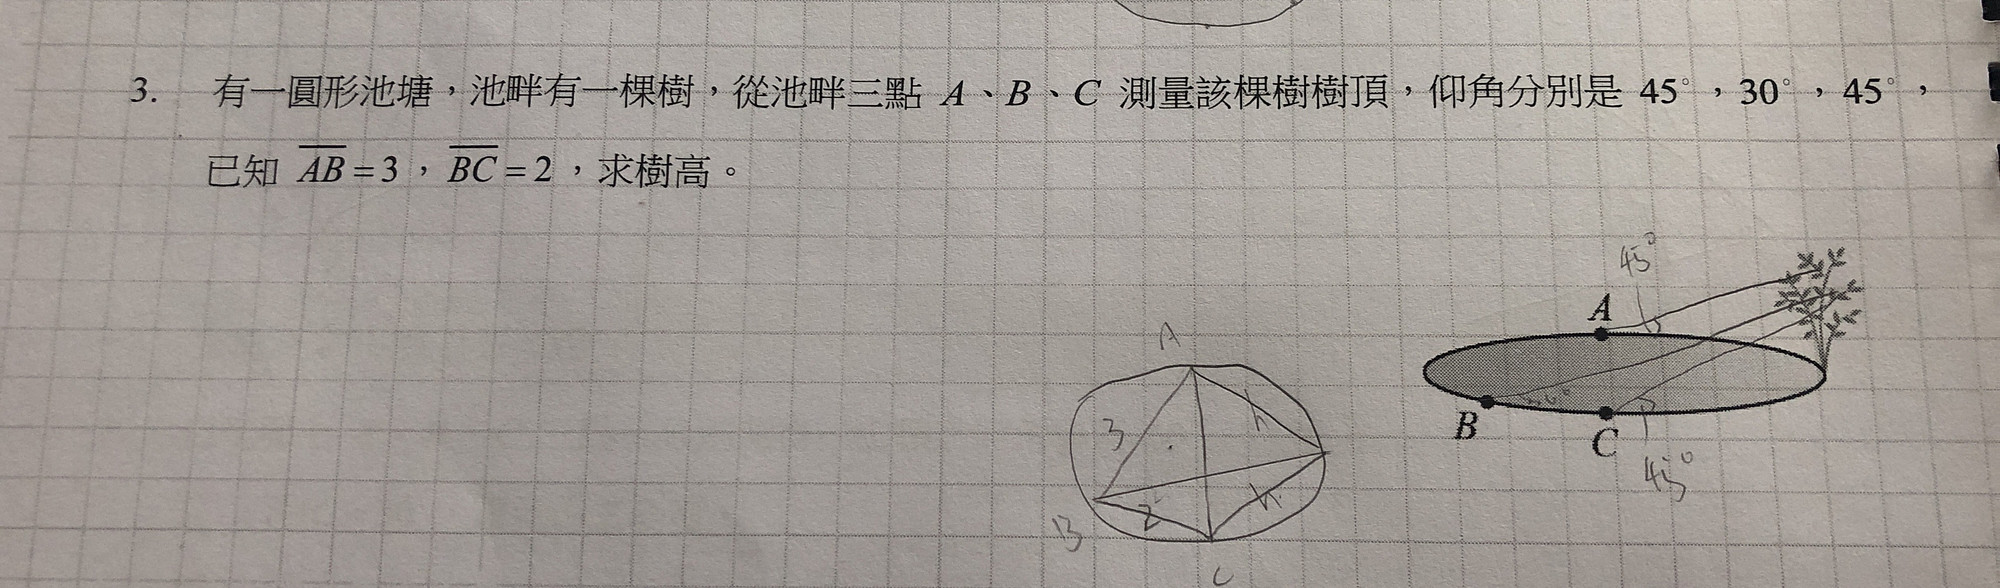 3. 有一圓形池塘，池畔有一棵樹，從池畔三點 A、B、C 測量該棵樹樹頂，仰角分別是 45°，30°，45°，
已知 AB=3，BC=2，求樹高。
45°
A
A
3
h
B
C
h
2
45°
B
C